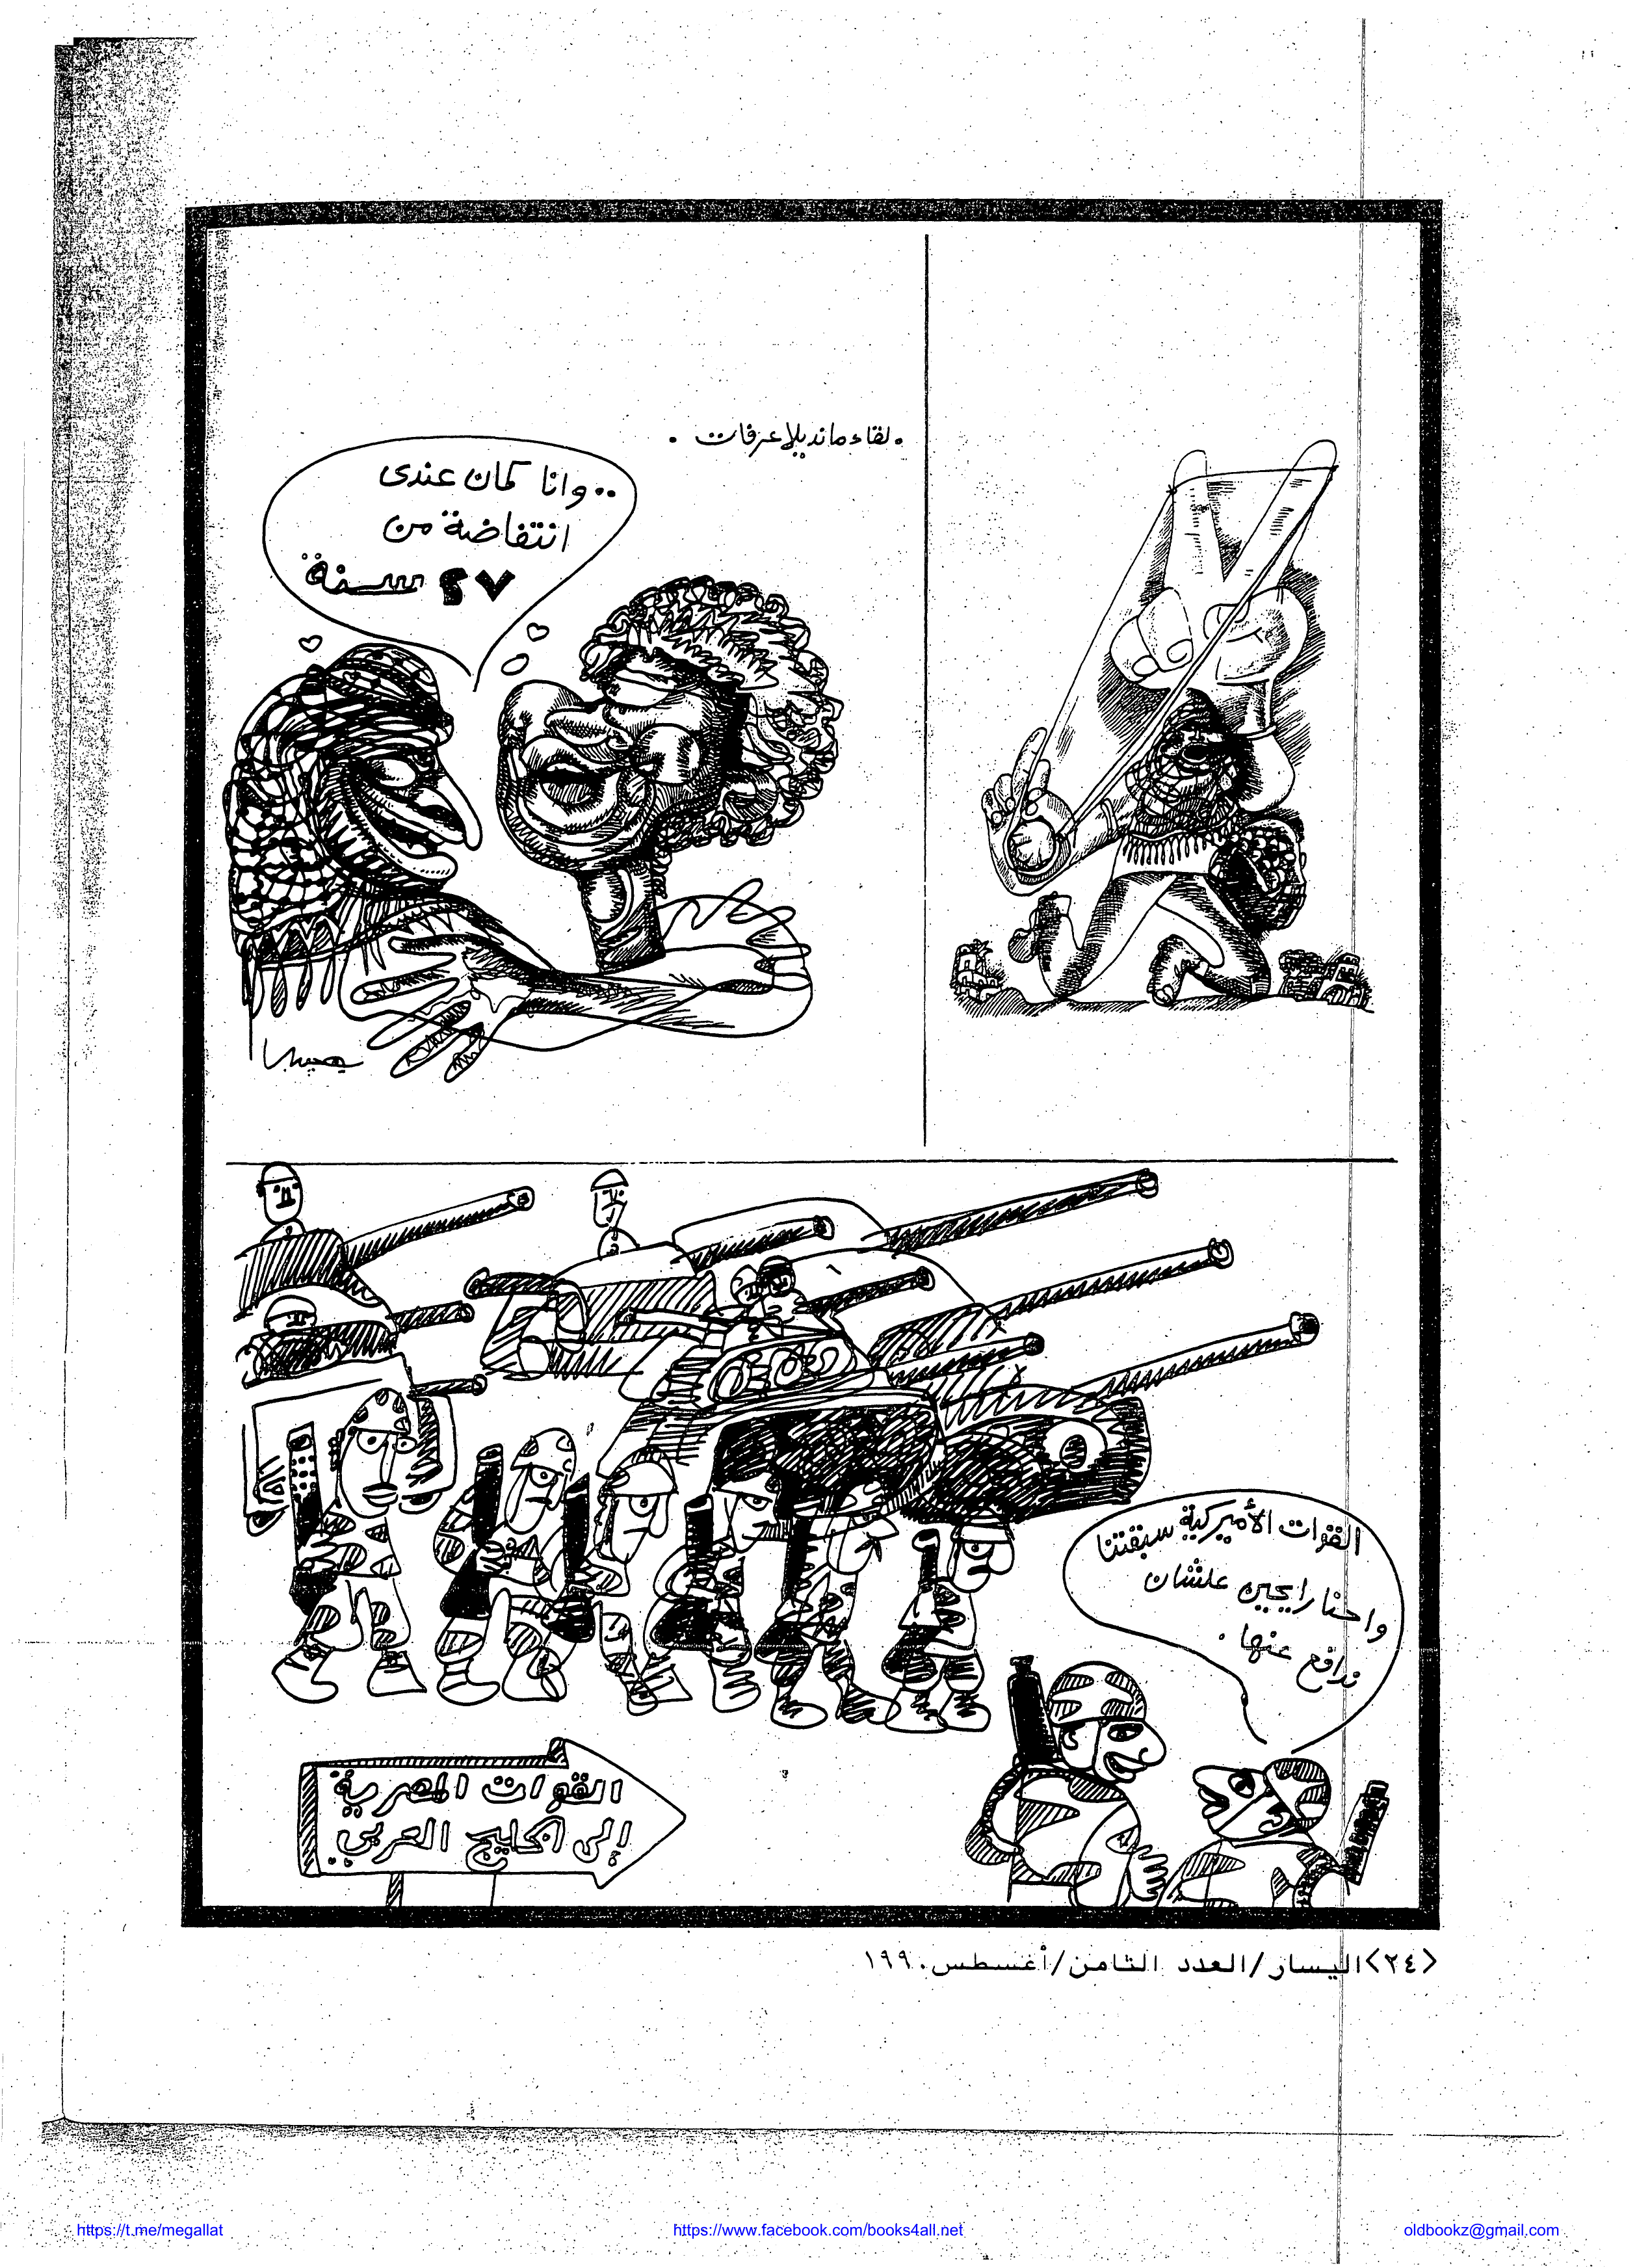 . لقاء مانديلا عرفات .
..وانا كمان عندى
انتفاضة من
٢٧ سنة
القوات الأميركية سبقتنا
واحنا رايحين علشان
ندافع عنها .
القوات المصرية
إلى الخليج العربي
<٢٤>اليسار/العدد الثامن/أغسطس ١٩٩٠
https://t.me/megallat
https://www.facebook.com/books4all.net
oldbookz@gmail.com